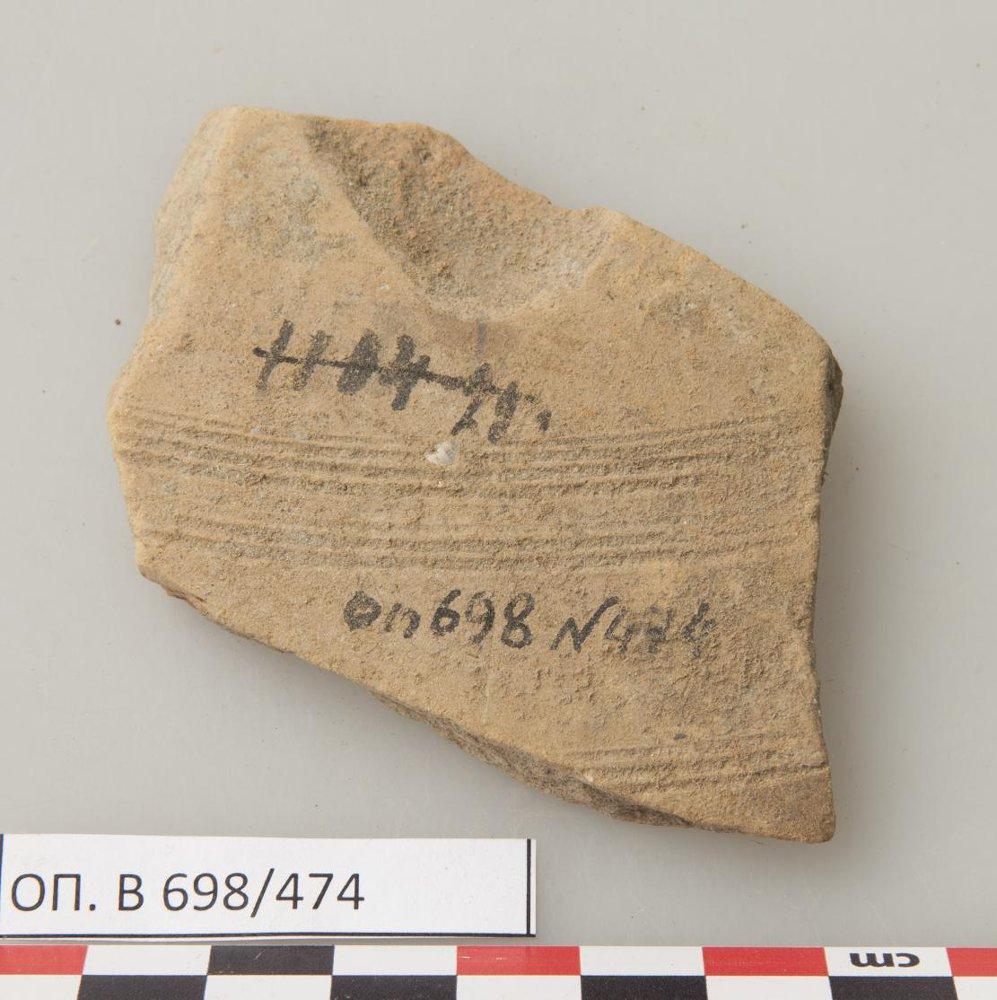 оп 698 N 474
ОП. В 698/474
cm